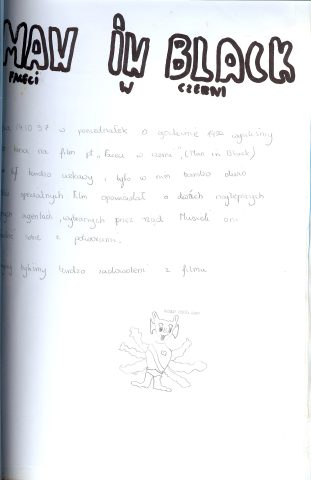 MAN IN BLACK
FACECI W CZERNI
14.10.97 w poniedziałek o godzinie wyszliśmy
kina na film pt. „Faceci w czerni” (Man in Black)
był bardzo ciekawy, było w nim bardzo dużo
specjalnych film opowiadał o dwóch najlepszych
agentach, wybranych przez rząd. Musieli oni
sobie z potworami.
byliśmy bardzo zadowoleni z filmu